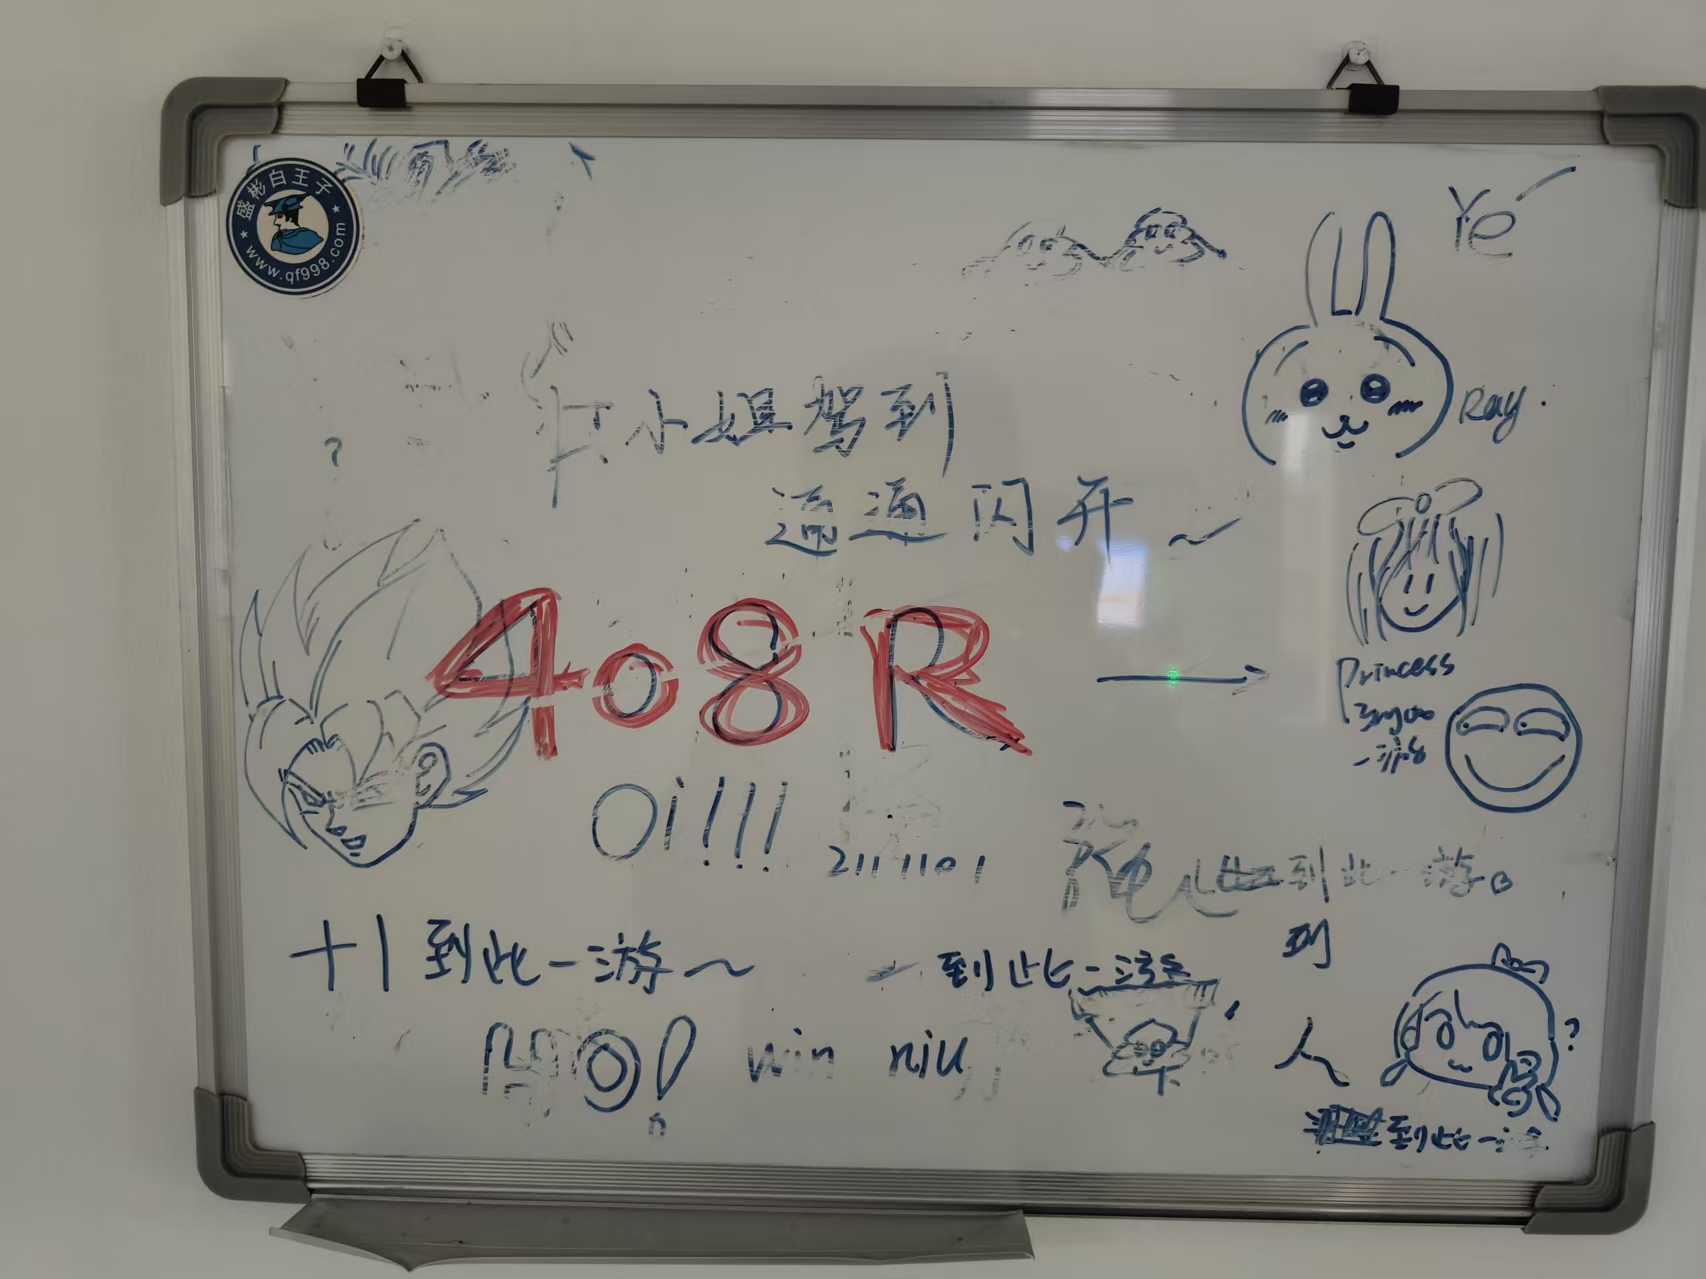 盛彬白王子
www.qf998.com
Ye
小姐驾到
Ray.
通通闪开~
?
408R
Princess
Oi!!!
2111101
到此一游。
十|到此一游~
到此一游
到
win niu
人
?
到此一游